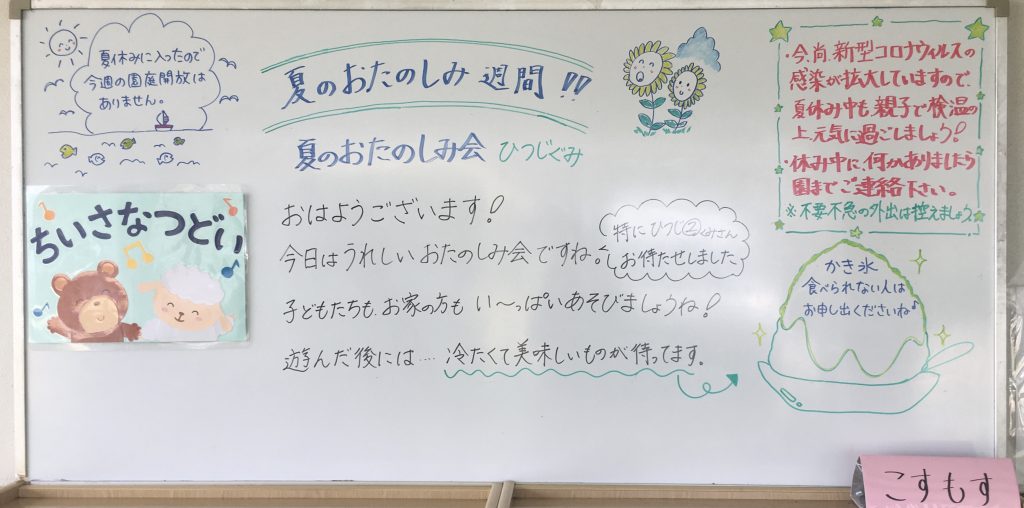 夏休みに入ったので
今週の園庭開放は
ありません。
夏のおたのしみ週間!!
夏のおたのしみ会 ひつじぐみ
おはようございます!
今日はうれしいおたのしみ会ですね。
特にひつじ②くみさん
お待たせしました
子どもたちも、お家の方も い〜っぱいあそびましょうね!
遊んだ後には‥‥冷たくて美味しいものが待ってます。
ちいさなつどい
・今、尚、新型コロナウィルスの
感染が拡大していますので、
夏休み中も、親子で検温の
上、元気に過ごしましょう!
・休み中に、何かありましたら
園までご連絡下さい。
※不要不急の外出は控えましょう。
かき氷
食べられない人は
お申し出くださいね♪
こすもす